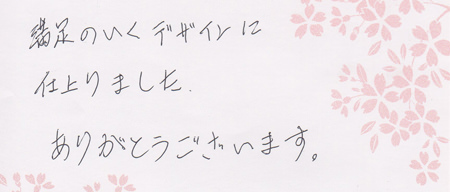 満足のいくデザインに
仕上りました.
ありがとうございます。